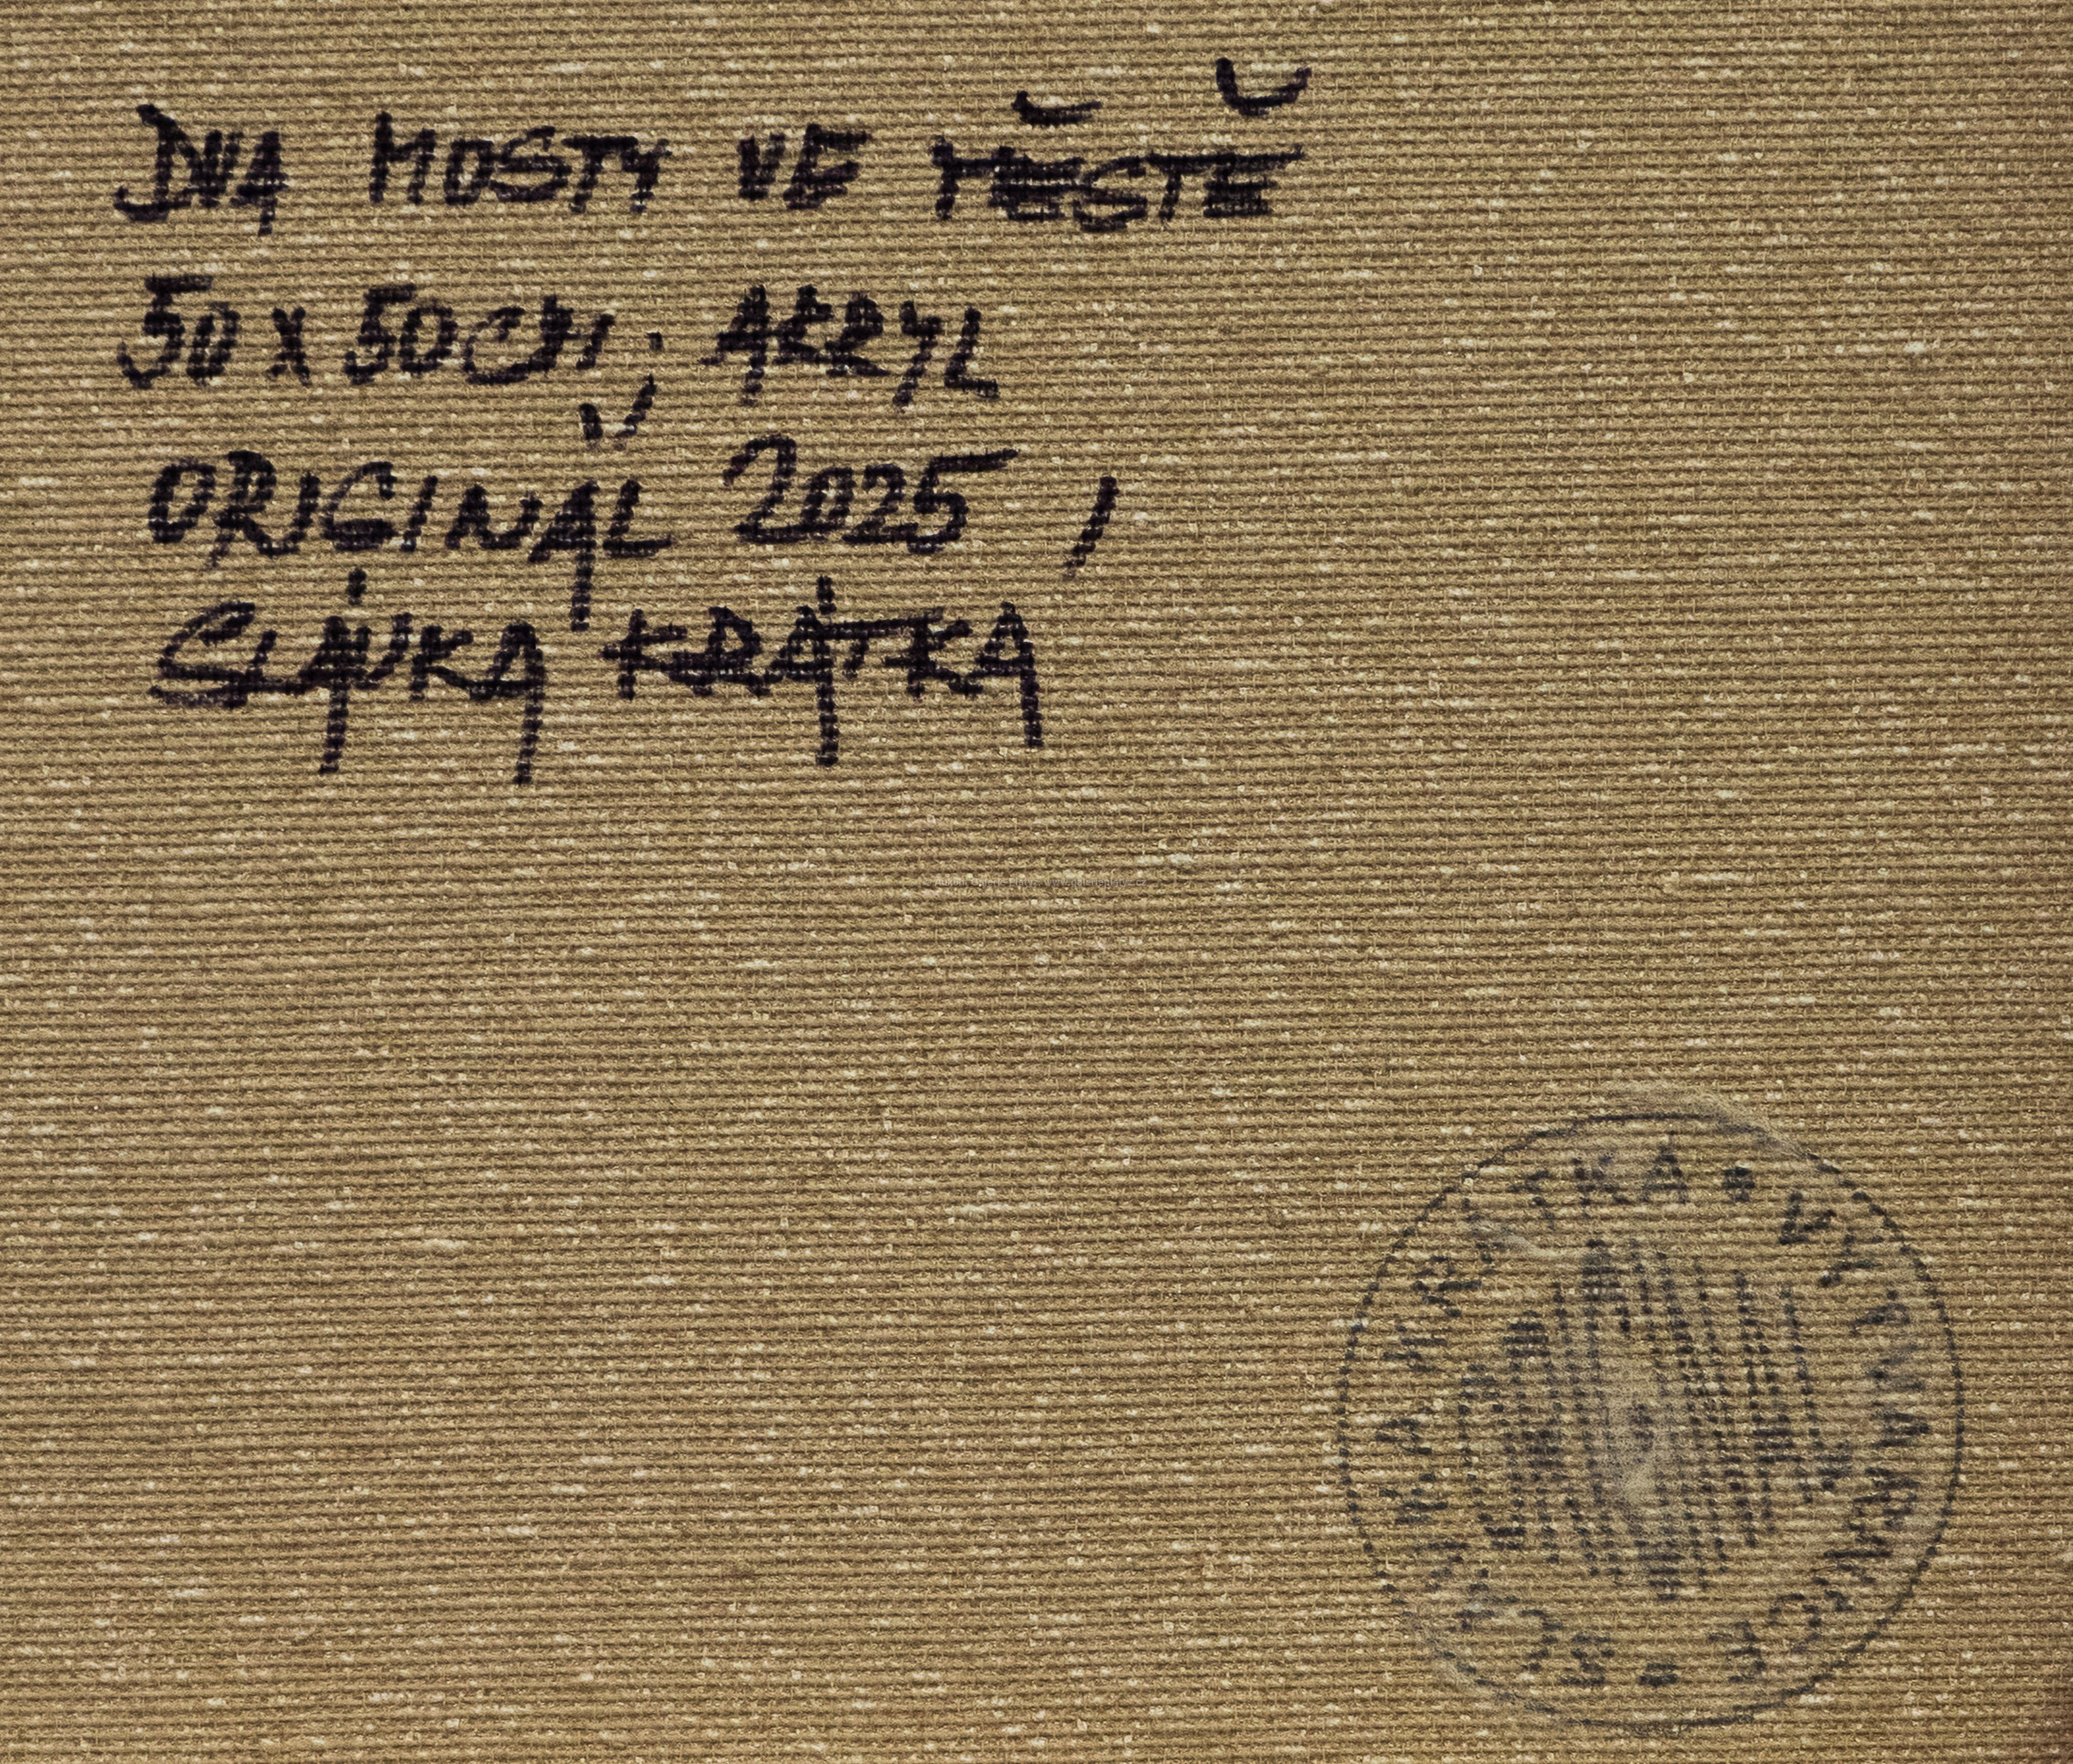 DVA MOSTY VE MĚSTĚ
50 x 50 cm; AKRYL
ORIGINÁL 2025
SLÁVKA KRÁTKÁ
SLÁVKA KRÁTKÁ • VÝTVARNICE •